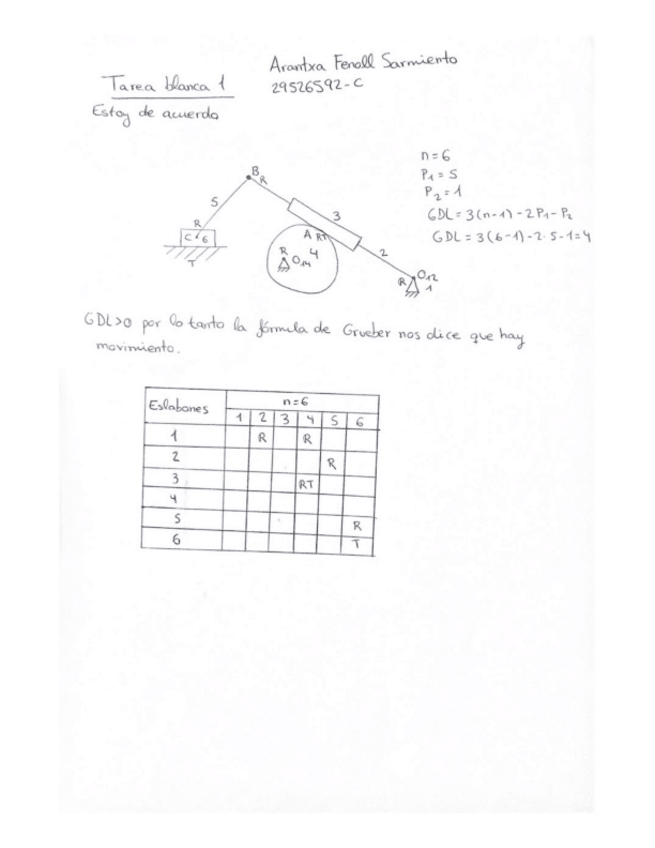 Arantxa Fenoll Sarmiento
Tarea blanca 1
29526592-C
Estoy de acuerdo
n=6
P1=5
P2=1
GDL=3(n-1)-2P1-P2
GDL=3(6-1)-2·5-1=4
B R
5
3
R
C 6
A RT
R 4
O14
2
T
R O12
1
GDL>0 por lo tanto la fórmula de Grueber nos dice que hay
movimiento.
Eslabones n=6
1 2 3 4 5 6
1 R R
2 R
3 RT
4
5 R
6 T